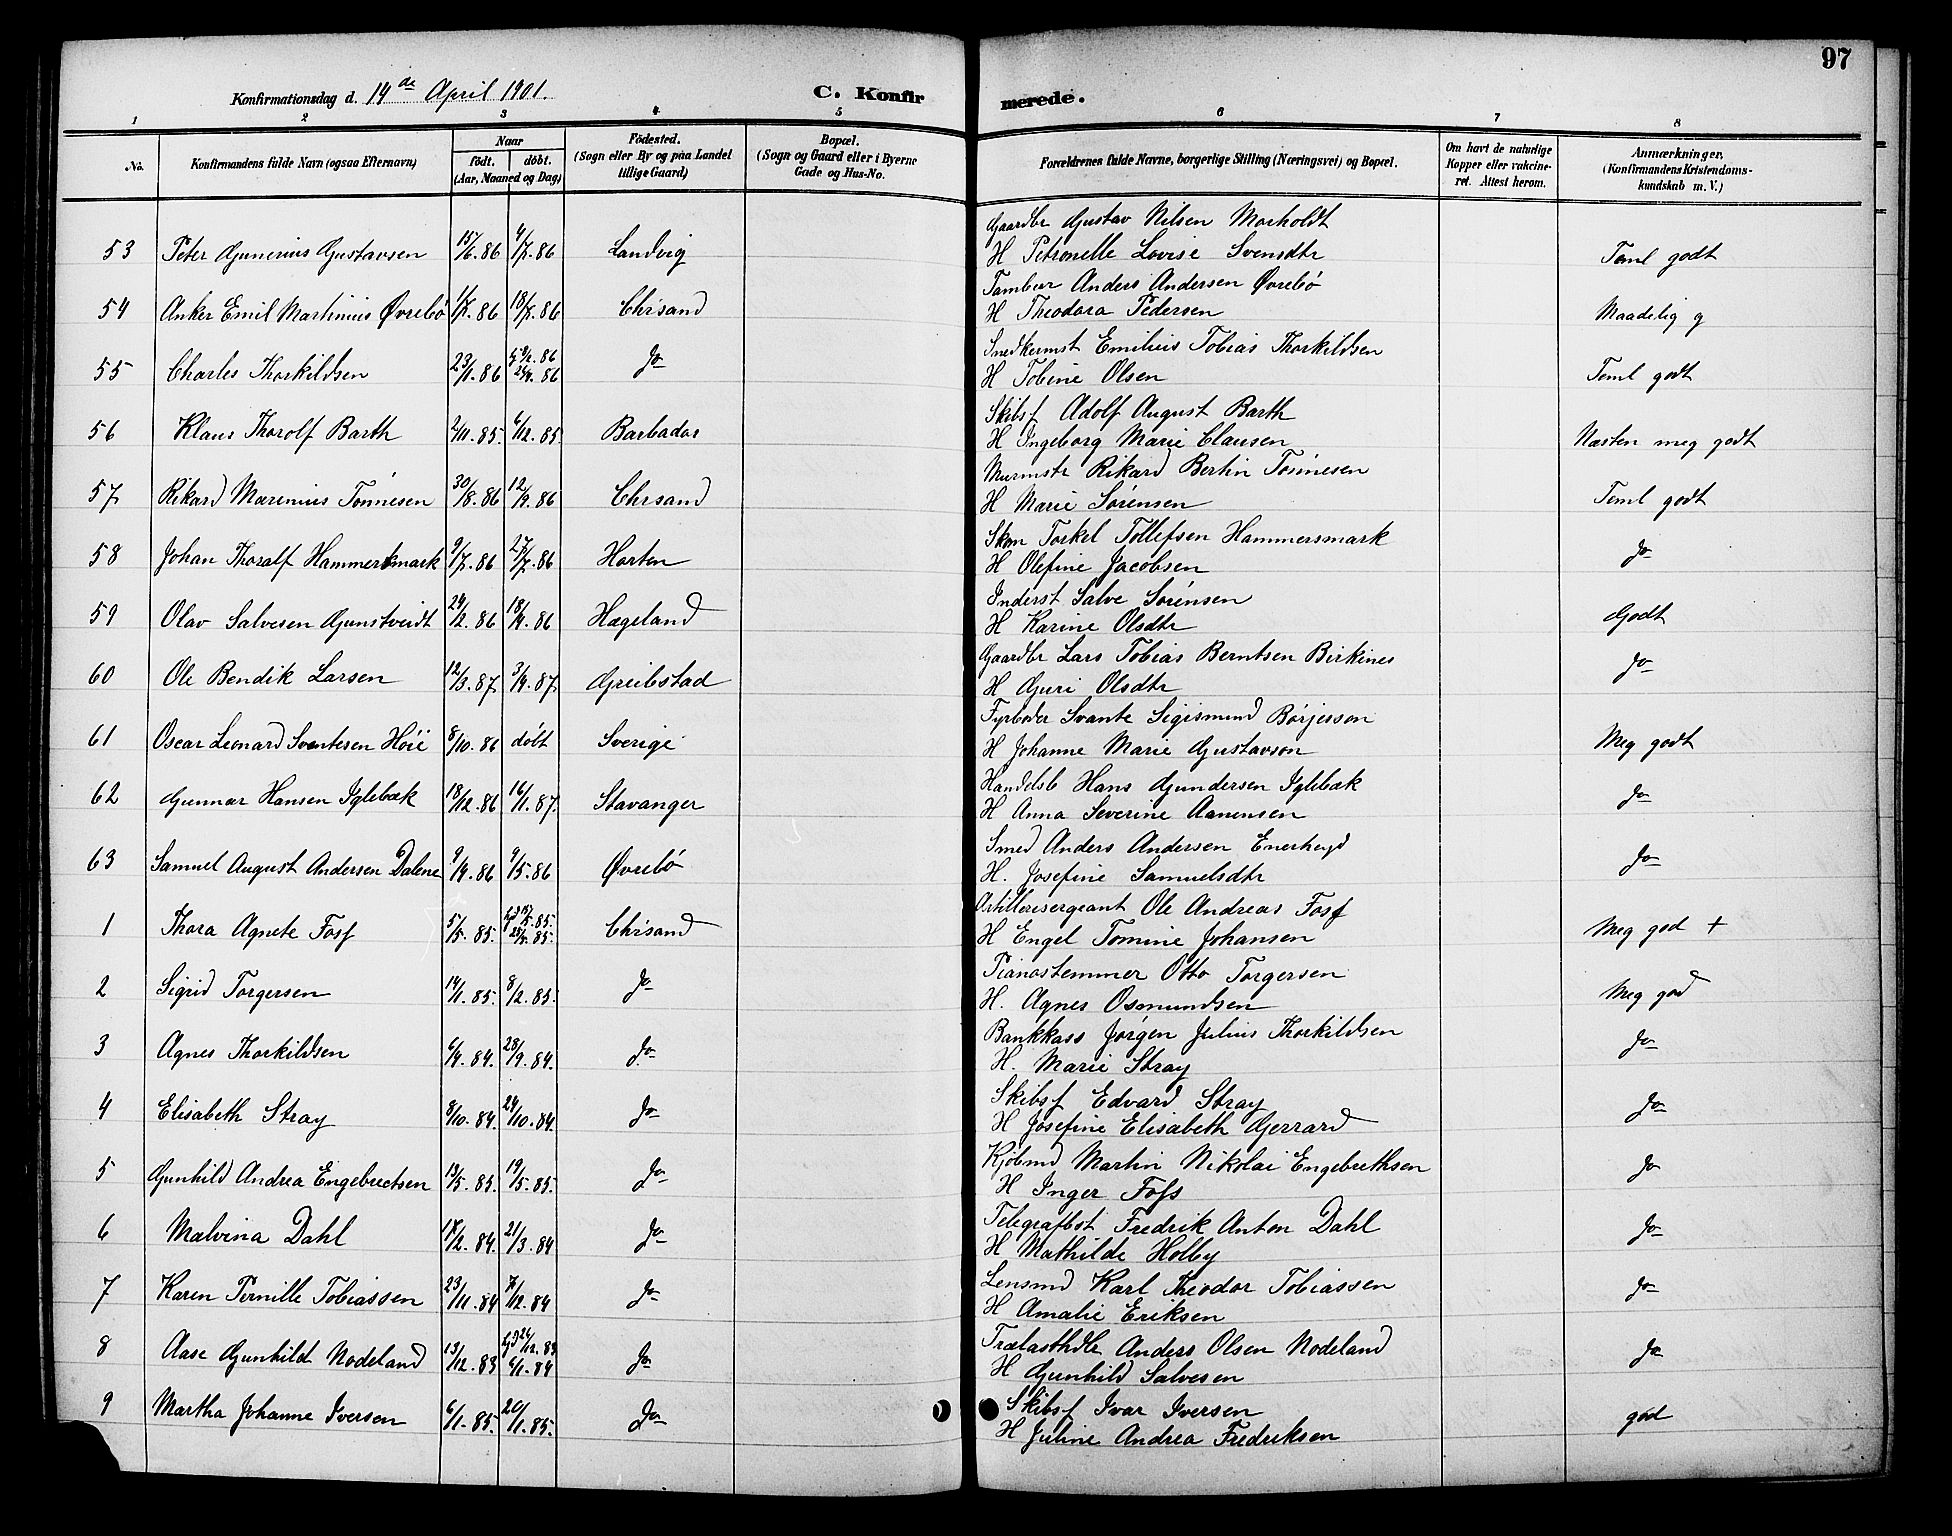 97
Konfirmationsdag d. 14de April 1901.
C. Konfirmerede.
1 2 3 4 5 6 7 8
No. Konfirmandens fulde Navn (ogsaa Efternavn) Naar født. døbt. (Aar, Maaned og Dag) Fødested. (Sogn eller By og paa Landet tillige Gaard) Bopæl. (Sogn og Gaard eller i Byerne Gade og Hus-No. Forældrenes fulde Navne, borgerlige Stilling (Næringsvei) og Bopæl. Om havt de naturlige Kopper eller vakcineret. Attest herom. Anmærkninger. (Konfirmandens Kristendomskundskab m. V.)
Gaardbr Gustav Nilsen Morholdt
53 Peter Gunerius Gustavsen 15/6.86 4/7.86 Landvig H Petronelle Lovise Svensdtr Teml godt
Tambur Anders Andersen Øvrebø
54 Anker Emil Martinius Øvrebø 1/7.86 18/8.86 Chrsand H Theodora Pedersen Maadelig g
Snedkermst Emilius Tobias Thorkildsen
55 Charles Thorkildsen 23/1.86 .86 Do H Tobine Olsen Teml godt
Skibsf Adolf August Barth
56 Klaus Thorolf Barth 2/11.85. 6/12.85 Barbados H Ingeborg Marie Clausen Næsten meg godt
Murmstr Rikard Bertin Tönnesen
57 Rikard Marenius Tönnesen 30/8.86 12/9.86 Chrsand H Marie Sörensen Teml godt
Skom Torkel Tollefsen Hammersmark
58 Johan Thoralf Hammersmark 9/7.86 27/7.86 Horten H Olefine Jacobsen Do
Inderst Salve Sörensen
59 Olav Salvesen Gunstveidt 24/2.86 18/4.86 Hægeland H Karine Olsdtr Godt
Gaardbr Lars Tobias Berntsen Birkines
60 Ole Bendik Larsen 12/3.87. 3/4.87. Greibstad H Guri Olsdtr Do
Fyrböder Svante Sigismund Börjesson
61 Oscar Leonard Svantesen Höie 8/10.86 döbt Sverige H Johanne Marie Gustavson Meg godt
Handelsb Hans Gundersen Iglebæk
62 Gunnar Hansen Iglebæk 18/12.86 16/1.87. Stavanger H Anna Severine Aanensen Do
Smed Anders Andersen Enerhagd
63 Samuel August Andersen Dalene 9/4.86 9/5.86 Øvrebö H. Josefine Samuelsdtr Do
Artillerisergeant Ole Andreas Foss
1 Thora Agnete Foss 5/5.85. .85. Chrsand H Engel Tomine Johansen Meg god +
Pianostemmer Otto Torgersen
2 Sigrid Torgersen 14/1.85. 8/2.85. Do H. Agnes Osmundsen Meg god
Bankkass Jörgen Julius Thorkildsen
3 Agnes Thorkildsen 6/9.84. 28/9.84. Do H. Marie Stray Do
Skibsf Edvard Stray
4 Elisabeth Stray 8/10.84. 24/10.84. Do H Josefine Elisabeth Gerrard Do
Kjöbmd Martin Nikolai Engebrethsen
5 Gunhild Andrea Engebrectsen 13/5.85. 19/5.85. Do H Inger Foss Do
Telegrafbst Fredrik Anton Dahl
6 Malvina Dahl 18/2.84. 21/3.84 Do H Mathilde Holby Do
Lensmd Karl Theodor Tobiassen
7 Karen Pernille Tobiassen 23/11.84 7/12.84 Do H Amalie Eriksen Do
Trælasthdlr Anders Olsen Nodeland
8 Aase Gunhild Nodeland 13/12.83 6/1.84 Do H Gunhild Salvesen Do
Skibsf Ivar Iversen
9 Martha Johanne Iversen 6/1.85. 20/1.85. Do H Juline Andrea Fredriksen god